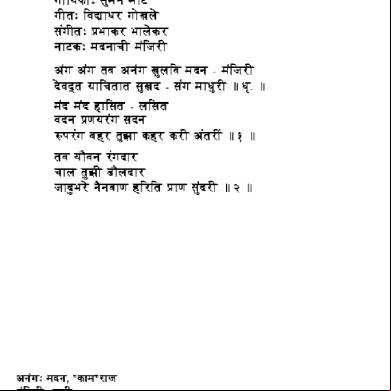 गायिकाः सुमन माटे
गीतः विद्याधर गोखले
संगीतः प्रभाकर भालेकर
नाटकः मदनाची मंजिरी
अंग अंग तव अनंग खुलवि मदन - मंजिरी
देवदूत याचितात सुखद - संग माधुरी ॥ धृ. ॥
मंद मंद हासित - लसित
वदन प्रणयरंग सदन
रूपरंग बहर तुझा कहर करी अंतरीं ॥ १ ॥
तव यौवन रंगदार
चाल तुझी डौलदार
जादुभरे नैनबाण हरिति प्राण सुंदरी ॥ २ ॥
अनंगः मदन, "काम"राज